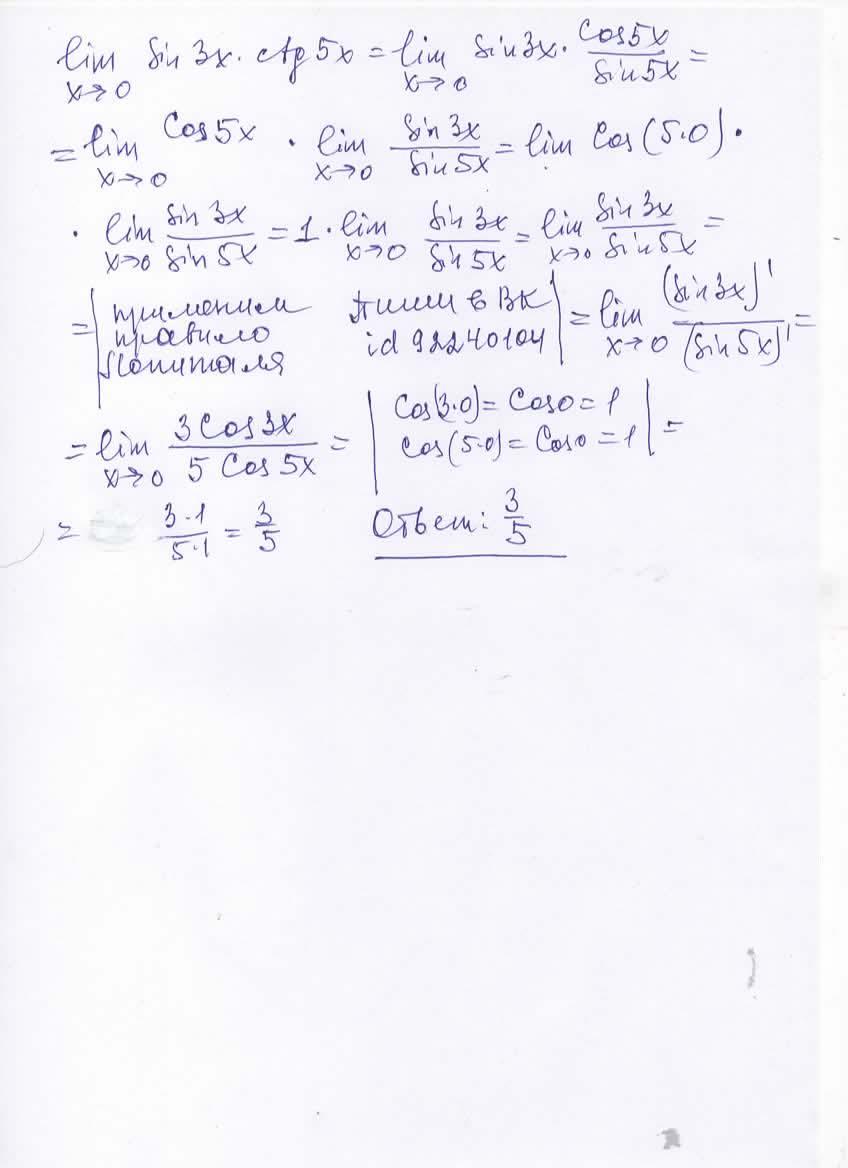 lim x→0 sin 3x · ctg 5x = lim x→0 sin 3x · cos 5x / sin 5x =
= lim x→0 cos 5x · lim x→0 sin 3x / sin 5x = lim cos(5·0) ·
· lim x→0 sin 3x / sin 5x = 1 · lim x→0 sin 3x / sin 5x = lim x→0 sin 3x / sin 5x =
= | применим правило Лопиталя пиши в ВК id 92240104 | = lim x→0 (sin 3x)' / (sin 5x)' =
= lim x→0 3 cos 3x / 5 cos 5x = | cos(3·0) = cos 0 = 1 cos(5·0) = cos 0 = 1 | =
= 3·1 / 5·1 = 3/5 Ответ: 3/5